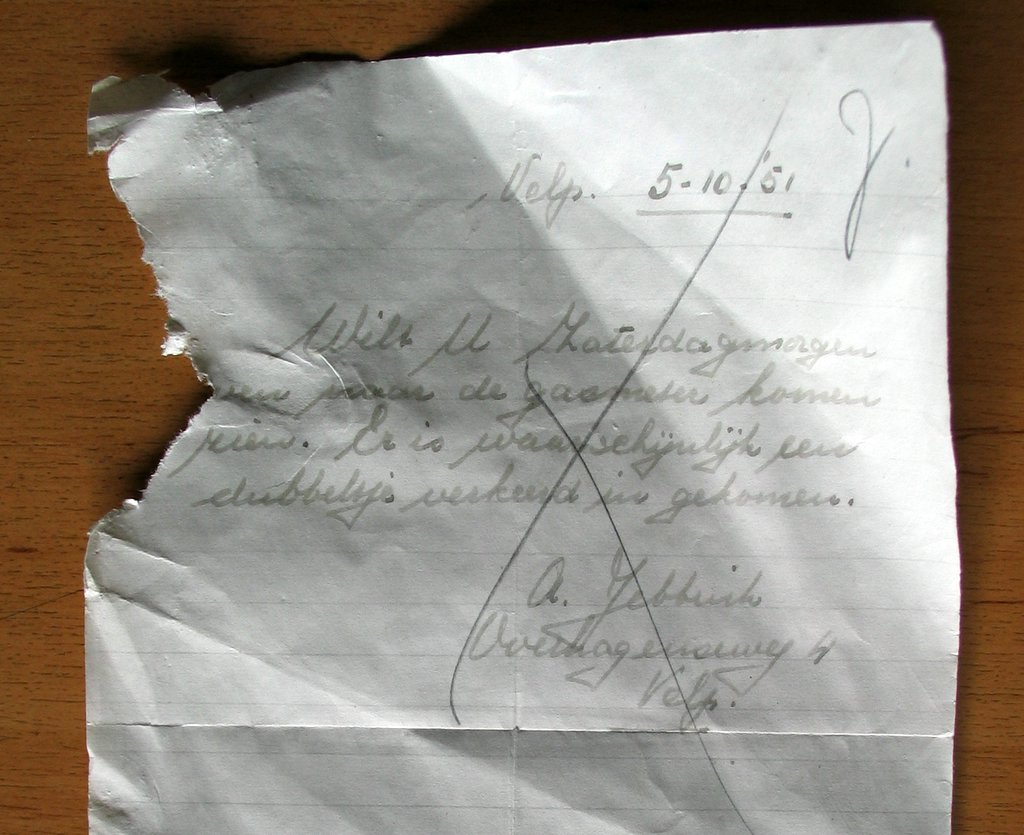 Velp. 5-10-'51
Wilt U Zaterdagmorgen
naar de gasmeter komen
zien. Er is waarschijnlijk een
dubbeltje verkeerd in gekomen.
A.
Overhagenseweg 4
Velp.